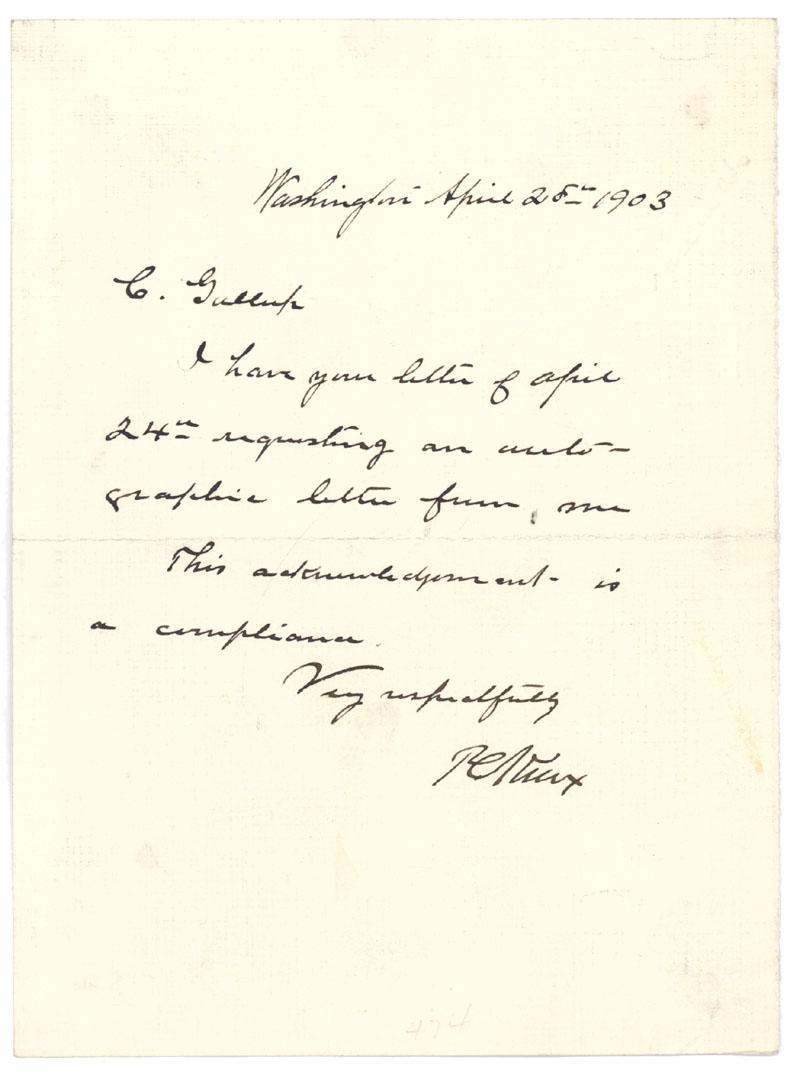 Washington April 28th 1903
C. Gallup
I have your letter of April
24th requesting an auto-
graphic letter from me
This acknowledgment is
a compliance.
Very respectfully
P C Knox
474